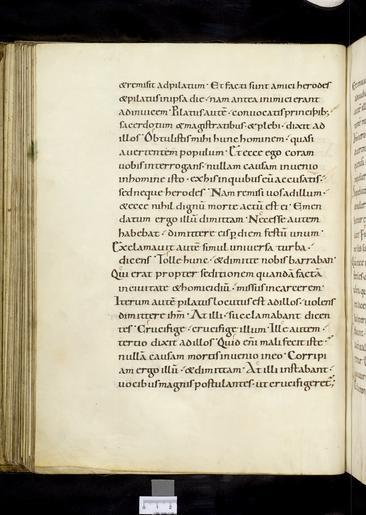 & remisit adpilatum · Et facti sunt amici herodes
& pilatus inipsa die · nam antea inimici erant
adinuicem · Pilatus autē · conuocatis principib;
sacerdotum & magistratibus · & plebi · dixit ad
illos · Obtulistis mihi hunc hominem · quasi
auertentem populum · Et ecce ego coram
uobis interrogans · nullam causam inuenio
inhomine isto · exhis inquibus eū accusatis ·
sedneque herodes · Nam remisi uos adillum ·
& ecce nihil dignū morte actū est ei · Emen
datum ergo illū dimittam · Necesse autem
habebat · dimittere eis p diem festū unum ·
Exclamauit autē simul uniuersa turba ·
dicens · Tolle hunc · & dimitte nobis barraban ·
Qui erat propter seditionem quandā factā
inciuitate & homicidiū · missus incarcerem ·
Iterum autē pilatus locutus est adillos · uolens
dimittere ihm̄ · At illi succlamabant dicen
tes · Crucifige · crucifige illum · Ille autem ·
tertio dixit adillos · Quid enī mali fecit iste ·
nullā causam mortis inuenio ineo · Corripi
am ergo illū · & dimittam · At illi instabant ·
uocibus magnis postulantes · ut crucifigeret᷑;